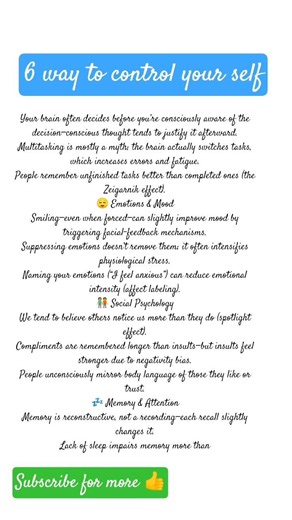 6 way to control your self
Your brain often decides before you're consciously aware of the
decision-conscious thought tends to justify it afterward.
Multitasking is mostly a myth; the brain actually switches tasks,
which increases errors and fatigue.
People remember unfinished tasks better than completed ones (the
Zeigarnik effect).
😌 Emotions & Mood
Smiling-even when forced-can slightly improve mood by
triggering facial-feedback mechanisms.
Suppressing emotions doesn't remove them; it often intensifies
physiological stress.
Naming your emotions ("I feel anxious") can reduce emotional
intensity (affect labeling).
🧑‍🤝‍🧑 Social Psychology
We tend to believe others notice us more than they do (spotlight
effect).
Compliments are remembered longer than insults-but insults feel
stronger due to negativity bias.
People unconsciously mirror body language of those they like or
trust.
💤 Memory & Attention
Memory is reconstructive, not a recording-each recall slightly
changes it.
Lack of sleep impairs memory more than
Subscribe for more 👍